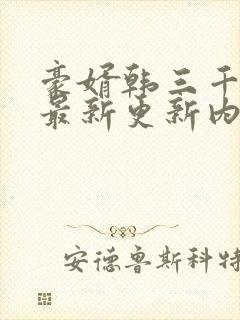 豪婿韩三千
最新更新内
安德鲁斯科特